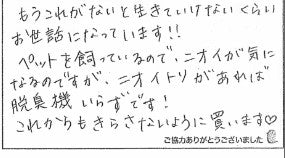 もうこれがないと生きていけないくらい
お世話になっています!!
ペットを飼っているので、ニオイが気に
なるのですが、ニオイトリがあれば
脱臭機いらずです!
これからもきらさないように買います♡
ご協力ありがとうございました